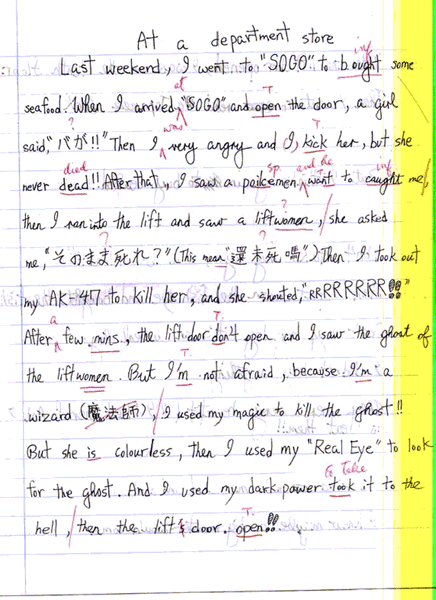 At a department store
Last weekend, I went to "SOGO" to bought some
inf
seafood. When I arrived "SOGO" and open the door, a girl
at T.
said, "バが!!" Then I very angry and I, kick her, but she
was T.
never dead!! After that, I saw a pailcemen want to caught me,
died sp and he inf
then I ran into the lift and saw a liftwomen, she asked
me, "そのまま死れ?" (This mean "還未死嗎") Then I took out
my AK-47 to kill her, and she shouted, "RRRRRRRRR!!"
After few mins, the lift door don't open and I saw the ghost of
a T.
the liftwomen. But I'm not afraid, because I'm a
T.
wizard (魔法師), I used my magic to kill the ghost!!
But she is colourless, then I used my "Real Eye" to look
for the ghost. And I used my dark power took it to the
to take
hell, then the lift door. open!!.
T.